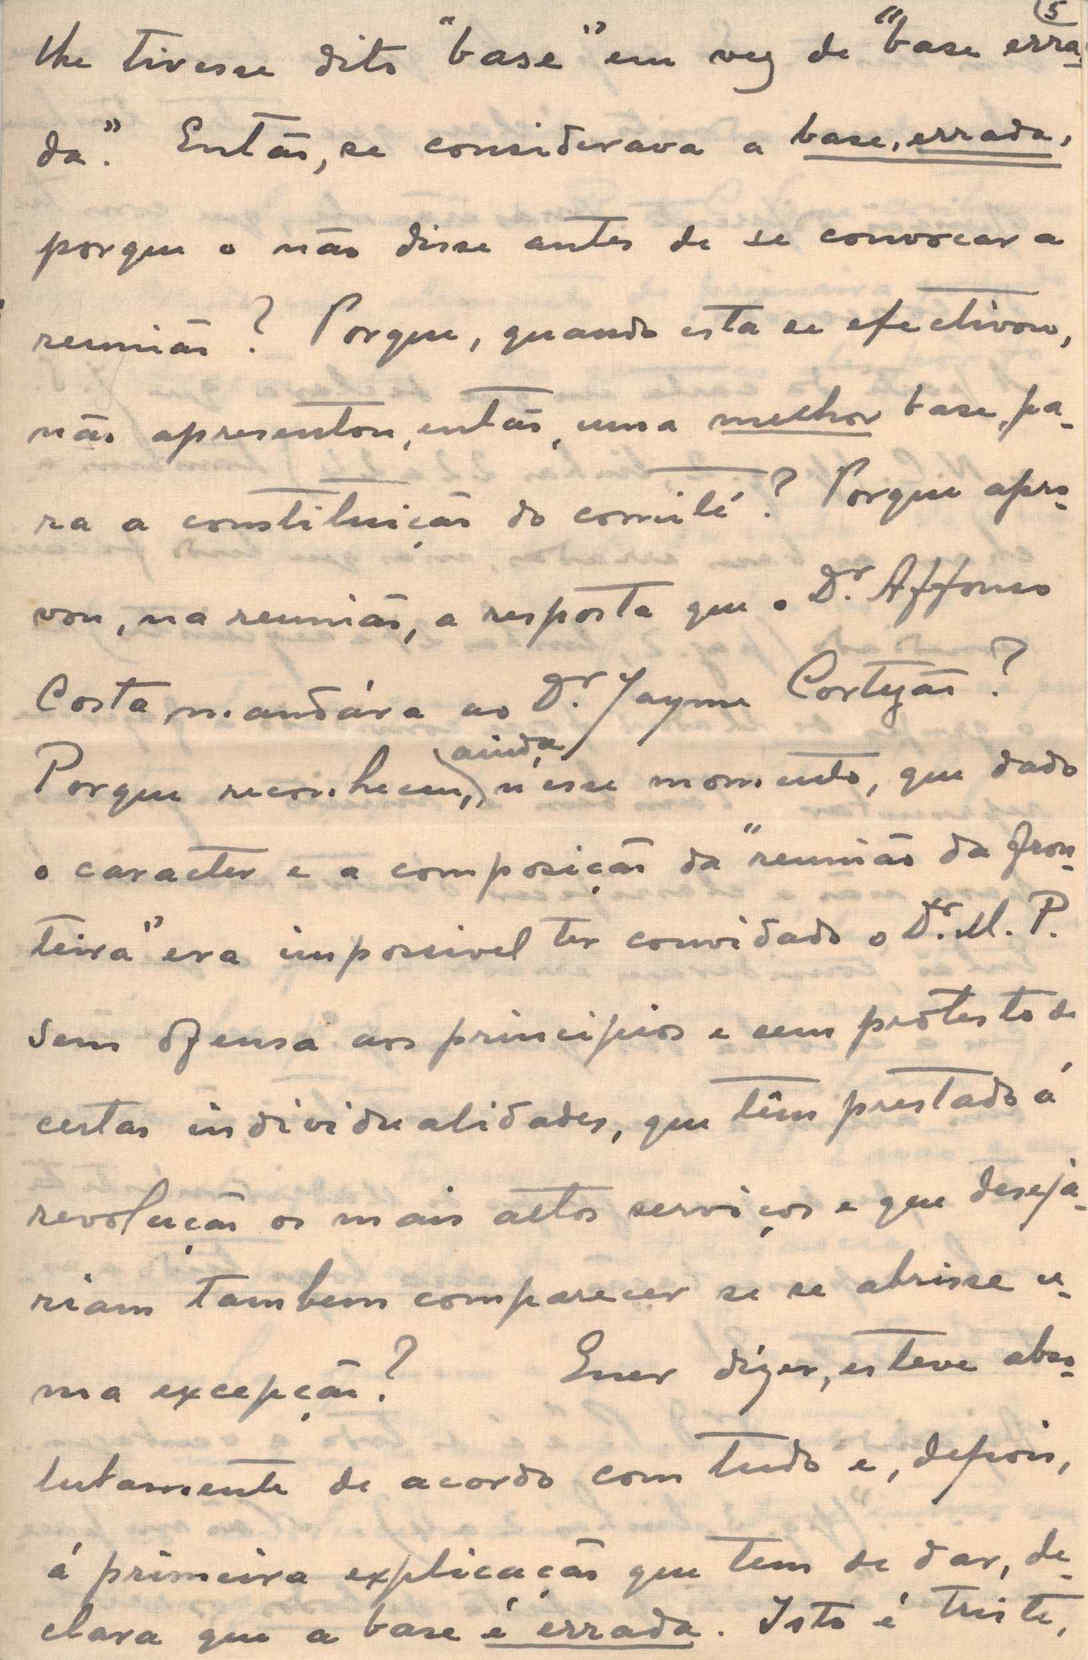 5
lhe tivesse dito "base" em vez de "base erra-
da". Então, se considerava a base, errada,
porque o não disse antes de se convocar a
reunião? Porque, quando esta se efectivou,
não apresentou, então, uma melhor base, pa-
ra a constituição do comité? Porque apro-
vou, na reunião, a resposta que o Dr. Affonso
Costa mandára ao Dr. Jayme Cortezão?
ainda
Porque reconheceu, n'esse momento, que dado
o caracter e a composição da "reunião da fron-
teira" era impossivel ter convidado o Dr. M. P.
sem ofensa aos principios e sem protesto de
certas individualidades, que têm prestado á
revolução os mais altos serviços e que deseja-
riam tambem comparecer se se abrisse u-
ma excepção? Quer dizer, esteve abso-
lutamente de acordo com tudo e, depois,
á primeira explicação que tem de dar, de-
clara que a base é errada. Isto é triste,